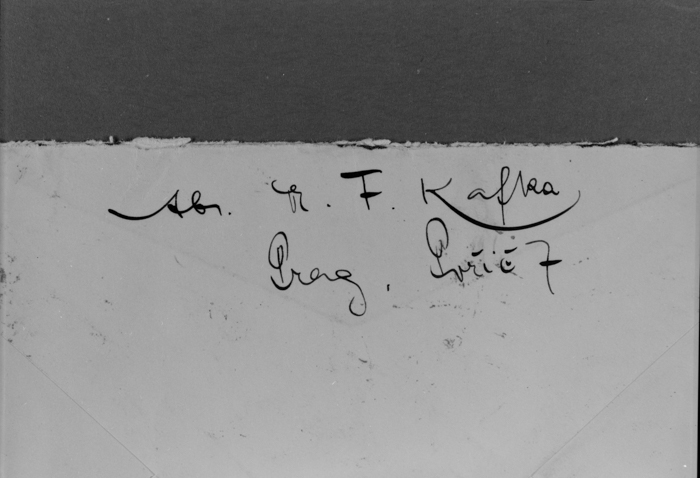 Abs. Dr. F. Kafka
Prag, Pořič 7